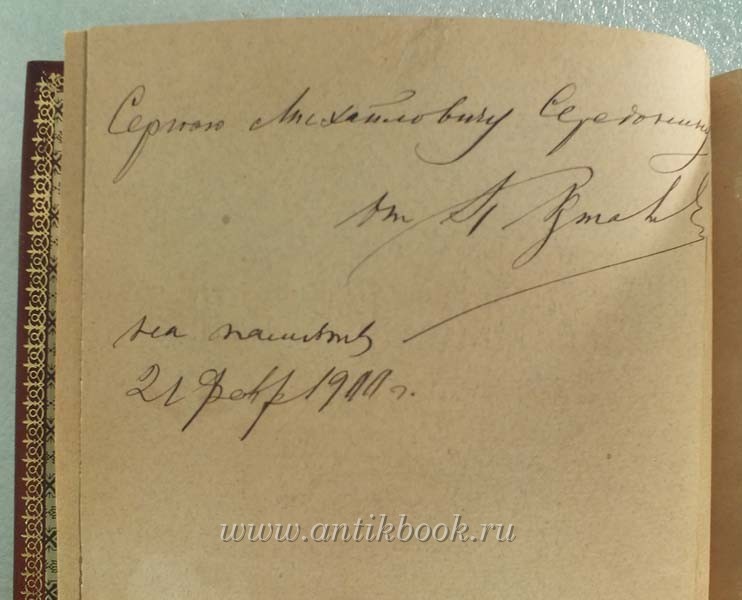 Сергѣю Михайловичу Середонину
от
на память
21 февр 1900 г.
www.antikbook.ru